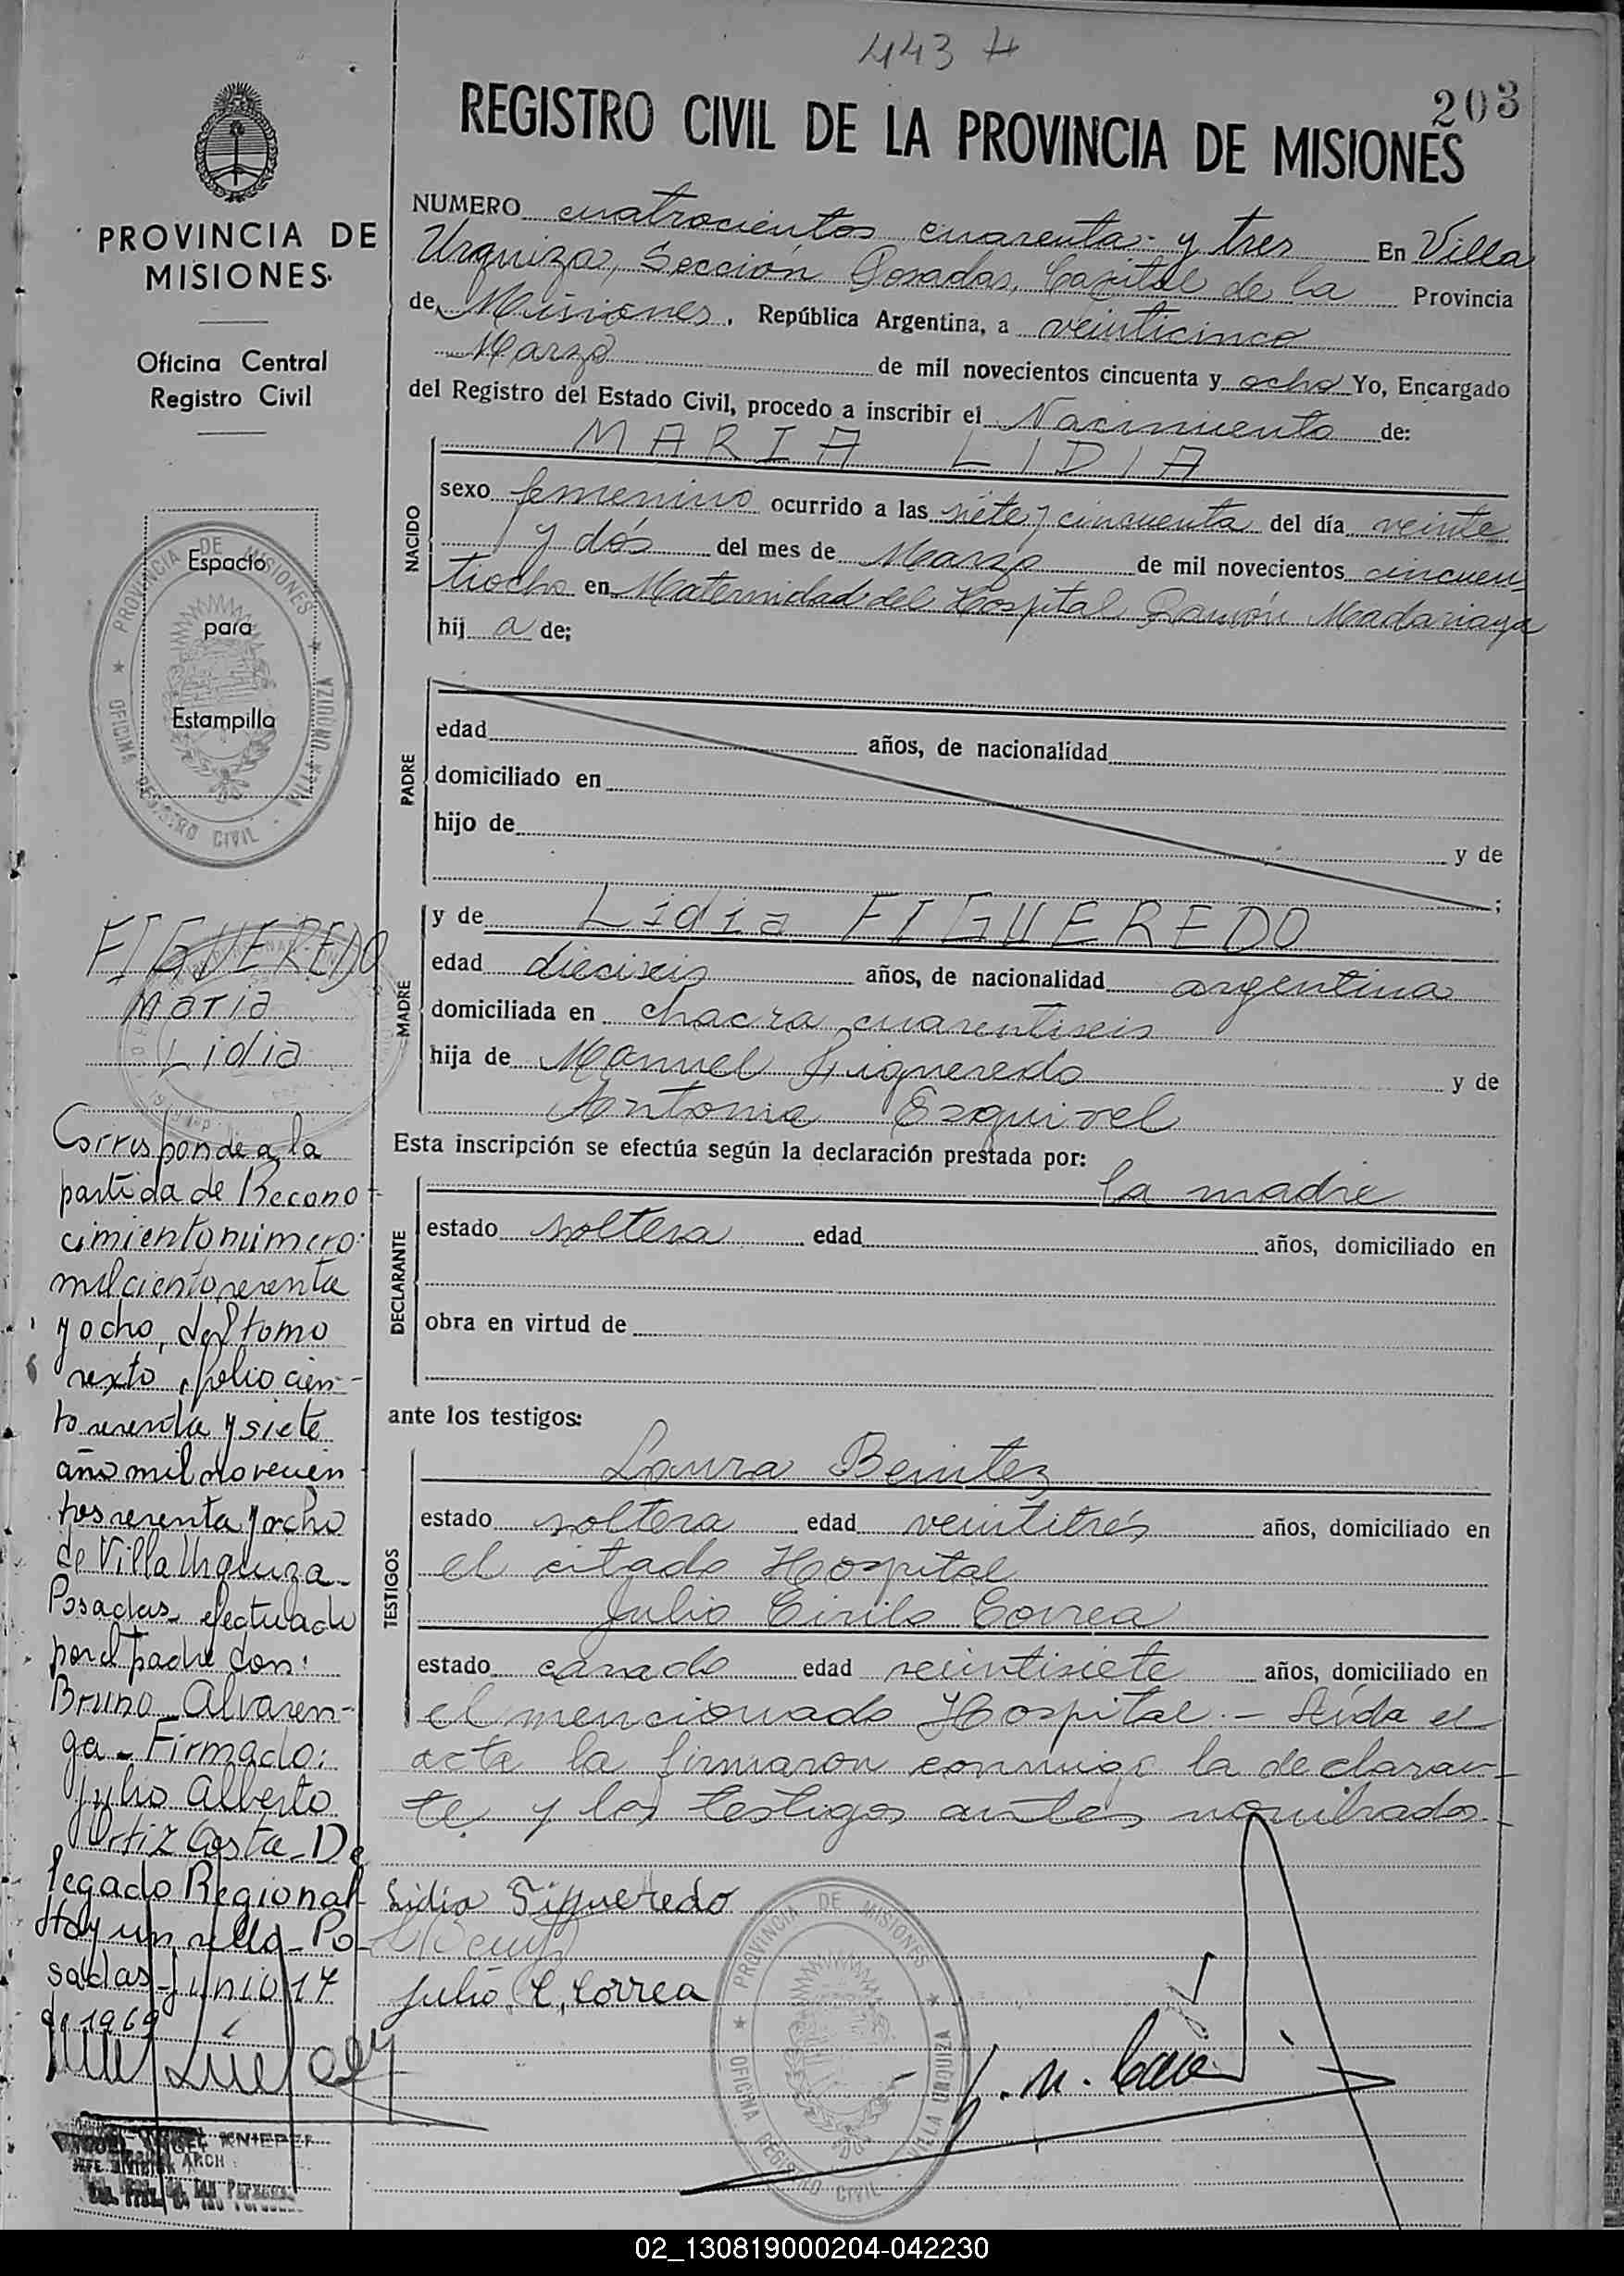 443 H
203
REGISTRO CIVIL DE LA PROVINCIA DE MISIONES
PROVINCIA DE
MISIONES
Oficina Central
Registro Civil
PROVINCIA DE MISIONES
OFICINA REGISTRO CIVIL - VILLA URQUIZA
Espacio
para
Estampilla
FIGUEREDO
Maria
Lidia
Corresponde a la
partida de Recono-
cimiento número
mil ciento sesenta
y ocho, del tomo
sexto, folio cien-
to sesenta y siete
año mil novecien
tos sesenta y ocho
de Villa Urquiza-
Posadas efectuado
por el padre don:
Bruno Alvaren-
ga - Firmado:
Julio Alberto
Ortiz Costa - De
legado Regional
Hay un sello - Po-
sadas - Junio 17
de 1969
KNIEPER
JEFE DIVISION ARCH
NUMERO cuatrocientos cuarenta y tres En Villa
Urquiza, Sección Posadas, Capital de la Provincia
de Misiones, República Argentina, a veinticinco
Marzo de mil novecientos cincuenta y ocho Yo, Encargado
del Registro del Estado Civil, procedo a inscribir el Nacimiento de:
NACIDO
MARIA LIDIA
sexo femenino ocurrido a las siete y cincuenta del día veinte
y dós del mes de Marzo de mil novecientos cincuen
tiocho en Maternidad del Hospital Ramón Madariaga
hij a de;
PADRE
edad años, de nacionalidad
domiciliado en
hijo de y de
;
MADRE
y de Lidia FIGUEREDO
edad dieciseis años, de nacionalidad argentina
domiciliada en chacra cuarentiseis
hija de Manuel Figueredo y de
Antonia Esquivel
Esta inscripción se efectúa según la declaración prestada por:
DECLARANTE
la madre
estado soltera edad años, domiciliado en
obra en virtud de
ante los testigos:
TESTIGOS
Laura Benitez
estado soltera edad veintitrés años, domiciliado en
el citado Hospital
Julio Cirilo Correa
estado casado edad veintisiete años, domiciliado en
el mencionado Hospital.- Leída el
acta la firmaron conmigo la declaran-
te y los testigos antes nombrados.-
Lidia Figueredo
Julio C. Correa
PROVINCIA DE MISIONES
OFICINA REGISTRO CIVIL - VILLA URQUIZA
02_130819000204-042230